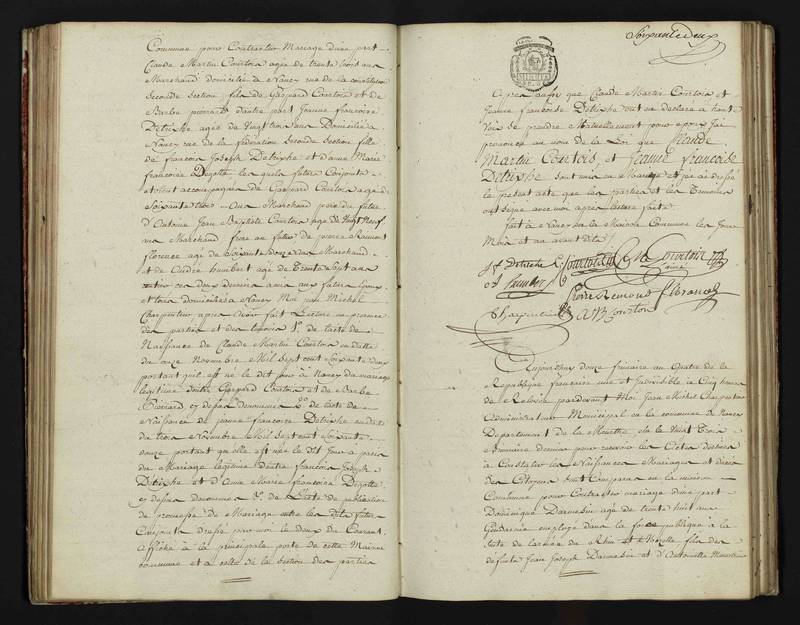 Commun pour Contracter Mariage d'une part
Claude Martin Courtois agé de trente trois ans
Marchand domicilié à Nancy rue de la constitution
seconde section fils de Gaspard Courtois et de
Barbe pierrard d'autre part Jeanne francoise
Detrixhe agée de Vingt trois ans Domiciliée à
Nancy rue de la federation seconde section fille
de francois Joseph Detrixhe et d'anne Marie
francoise Degotte les quels futurs Conjoints
etoient accompagnés de Gaspard Courtois agé de
soixante trois ans Marchand pere du futur
d'Antoine Jean Baptiste Courtois agé de Vingt Neuf
ans Marchand frere au futur de pierre Raimont
florence agé de soixante douze ans Marchand
et de André humbert agé de Trente sept ans
ces deux derniers amis aux futurs Epoux
et tous domiciliés à Nancy Moi jean Michel
Charpentier apres avoir fait Lecture en presence
des parties et des temoins 1º. de l'acte de
Naissance de Claude Martin Courtois en datte
du onze Novembre Mil sept cent soixante deux
portant qu'il est né le dit jour à Nancy du mariage
legitime d'entre Gaspard Courtois et de Barbe
Pierrard cy dessus denommés 2º. de l'acte de
Naissance de jeanne francoise Detrixhe en datte
du trois Novembre Mil sept cent soixante
douze portant qu'elle est née le dit jour à
du Mariage legitime d'entre francois Joseph
Detrixhe et d'Anne Marie francoise Degotte
cy dessus denommés 3º. de l'acte de publication
de promesse de Mariage entre les dits futurs
Conjoints dressé par moi le deux du Courant
affiché à la principale porte de cette Maison
commune et a celle de la section des parties
Soixante deux
Apres aussi que Claude Martin Courtois et
Jeanne francoise Detrixhe ont eu declaré à haute
Voix se prendre Mutuellement pour epoux J'ai
prononcé au nom de la Loi que Claude
Martin Courtois, et Jeanne francoise
Detrixhe sont unis en Mariage et j'ai dressé
le present acte que les parties et les Temoins
ont signé avec moi apres lecture faite
fait à Nancy en la Maison Commune les Jour
Mois et an avant dits /.
J f Detrixhe C M Courtois
G Courtois pere
humbert
Pierre Remond Florance
Charpentier
A J B Courtois
Aujourd'huy douze frimaire an Quatre de la
Republique francaise une et Indivisible à Cinq heures
de Relevée pardevant Moi Jean Michel Charpentier
Administrateur Municipal en la commune de Nancy
Departement de la Meurthe élu le Vingt Trois
Brumaire dernier pour recevoir les Actes destinés
à Constater les Naissances Mariages et deces
des Citoyens sont Comparus en la maison
Commune pour Contracter mariage d'une part
Dominique Darmebin agé de trente huit ans
Gendarme employé dans la force publique à la
suite de l'armée du Rhin et Moselle fils des
defunts Jean Joseph Darmebin et d'Antoinette